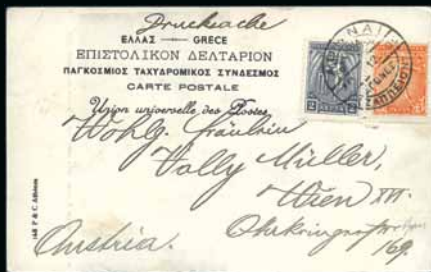 Drucksache
ΕΛΛΑΣ — GRECE
ΕΠΙΣΤΟΛΙΚΟΝ ΔΕΛΤΑΡΙΟΝ
ΠΑΓΚΟΣΜΙΟΣ ΤΑΧΥΔΡΟΜΙΚΟΣ ΣΥΝΔΕΣΜΟΣ
CARTE POSTALE
Union universelle des Postes
Wohlg. Fräulein
Vally Müller,
Wien XVI.
169.
Austria.
2